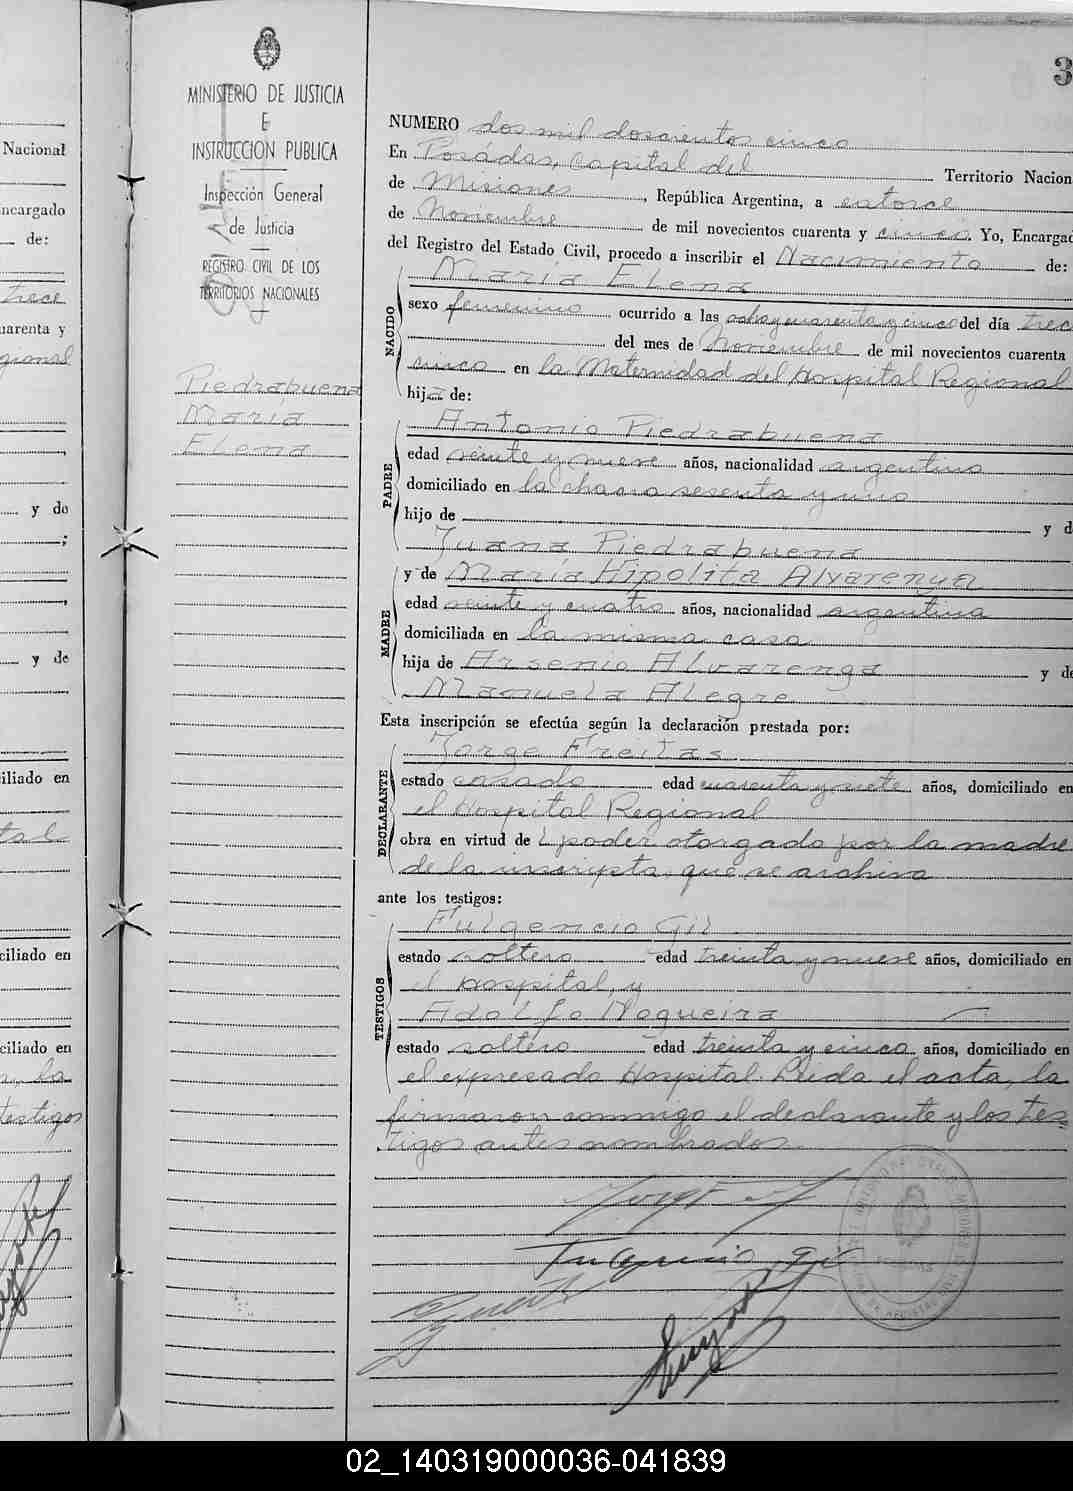 3
MINISTERIO DE JUSTICIA
E
INSTRUCCION PUBLICA
Inspección General
de Justicia
REGISTRO CIVIL DE LOS
TERRITORIOS NACIONALES
Piedrabuena
Maria
Elena
Nacional
ncargado
de:
trece
uarenta y
gional
y de
;
y de
iliado en
tal
ciliado en
ciliado en
la
testigos
NUMERO dos mil doscientos cinco
En Posádas, Capital del Territorio Nacion
de Misiones, República Argentina, a catorce
de Noviembre de mil novecientos cuarenta y cinco. Yo, Encargad
del Registro del Estado Civil, procedo a inscribir el Nacimiento de:
NACIDO
María Elena
sexo femenino ocurrido a las ocho y cuarenta y cinco del día trece
del mes de Noviembre de mil novecientos cuarenta
cinco en la Maternidad del Hospital Regional
hija de:
PADRE
Antonio Piedrabuena
edad veinte y nueve años, nacionalidad argentino
domiciliado en la chacra sesenta y uno
hijo de y d
Juana Piedrabuena
MADRE
y de María Hipolita Alvarenga
edad veinte y cuatro años, nacionalidad argentina
domiciliada en la misma casa
hija de Arsenio Alvarenga y de
Manuela Alegre
Esta inscripción se efectúa según la declaración prestada por:
DECLARANTE
Jorge Freitas
estado casado edad cuarenta y siete años, domiciliado en
el Hospital Regional
obra en virtud de poder otorgado por la madre
de la inscripta, que se archiva
ante los testigos:
TESTIGOS
Fulgencio Gil
estado soltero edad treinta y nueve años, domiciliado en
el Hospital, y
Adolfo Nogueira
estado soltero edad treinta y cinco años, domiciliado en
el expresado Hospital. Leida el acta, la
firmaron conmigo el declarante y los tes-
tigos antes nombrados.
02_140319000036-041839